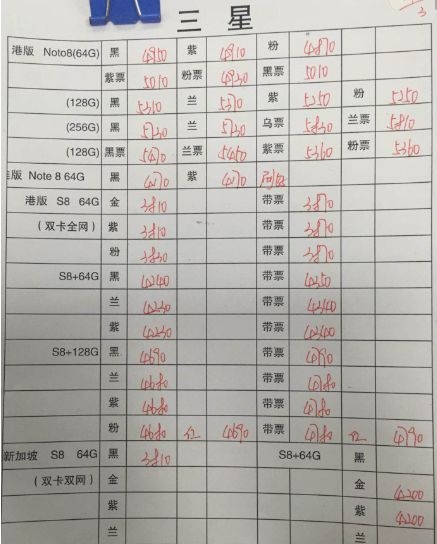 三 星
港版 Note8(64G) 黑 4950 紫 4910 粉 4870
紫票 5010 粉票 4930 黑票 5010
(128G) 黑 5310 兰 5370 紫 5250 粉 5250
(256G) 黑 5730 兰 5730 乌票 5830 兰票 5810
(128G) 黑票 5470 兰票 5450 紫票 5360 粉票 5360
版 Note 8 64G 黑 4270 紫 4270
港版 S8 64G 金 3810 带票 3870
(双卡全网) 紫 3810 带票 3870
粉 3830 带票 3870
S8+64G 黑 4240 带票 4350
兰 4230 带票 4340
紫 4230 带票 4340
S8+128G 黑 4690 带票 4790
兰 4680 带票 4780
紫 4680 带票 4780
粉 4680 红 4690 带票 4780 红 4790
新加坡 S8 64G 黑 3810 S8+64G 黑
(双卡双网) 金 4200
紫 4200
兰